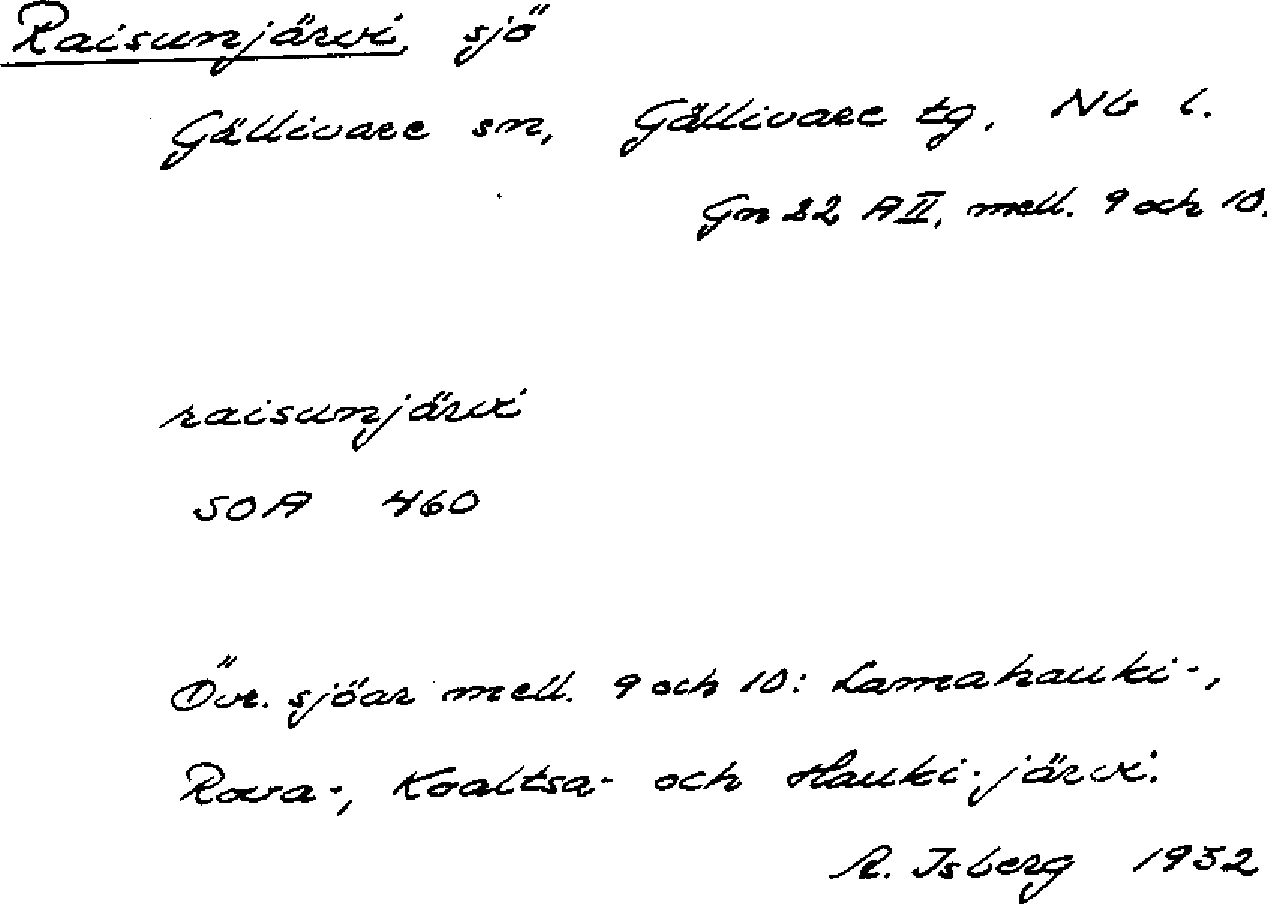 Raisunjärvi, sjö
Gällivare sn, Gällivare tg, Nb l.
Gn 22 A II, mell. 9 och 10.
raisunjärvi
SOA 460
Övr. sjöar mell. 9 och 10: Lamahauki-,
Rova-, Koaltsa- och Hauki-järvi.
R. Isberg 1932